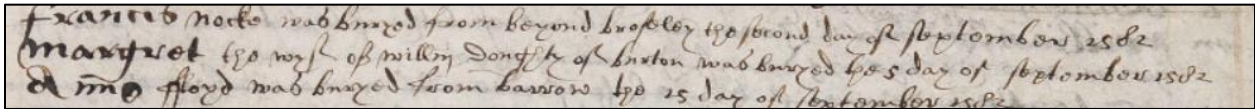 Francis nocke was buryed from beyond broseley the second day of september 1582
Margret the wyf of willm Doughty of burton was buryed the 5 day of september 1582
Anne ffloyd was buryed from barrow the 15 day of september 1582